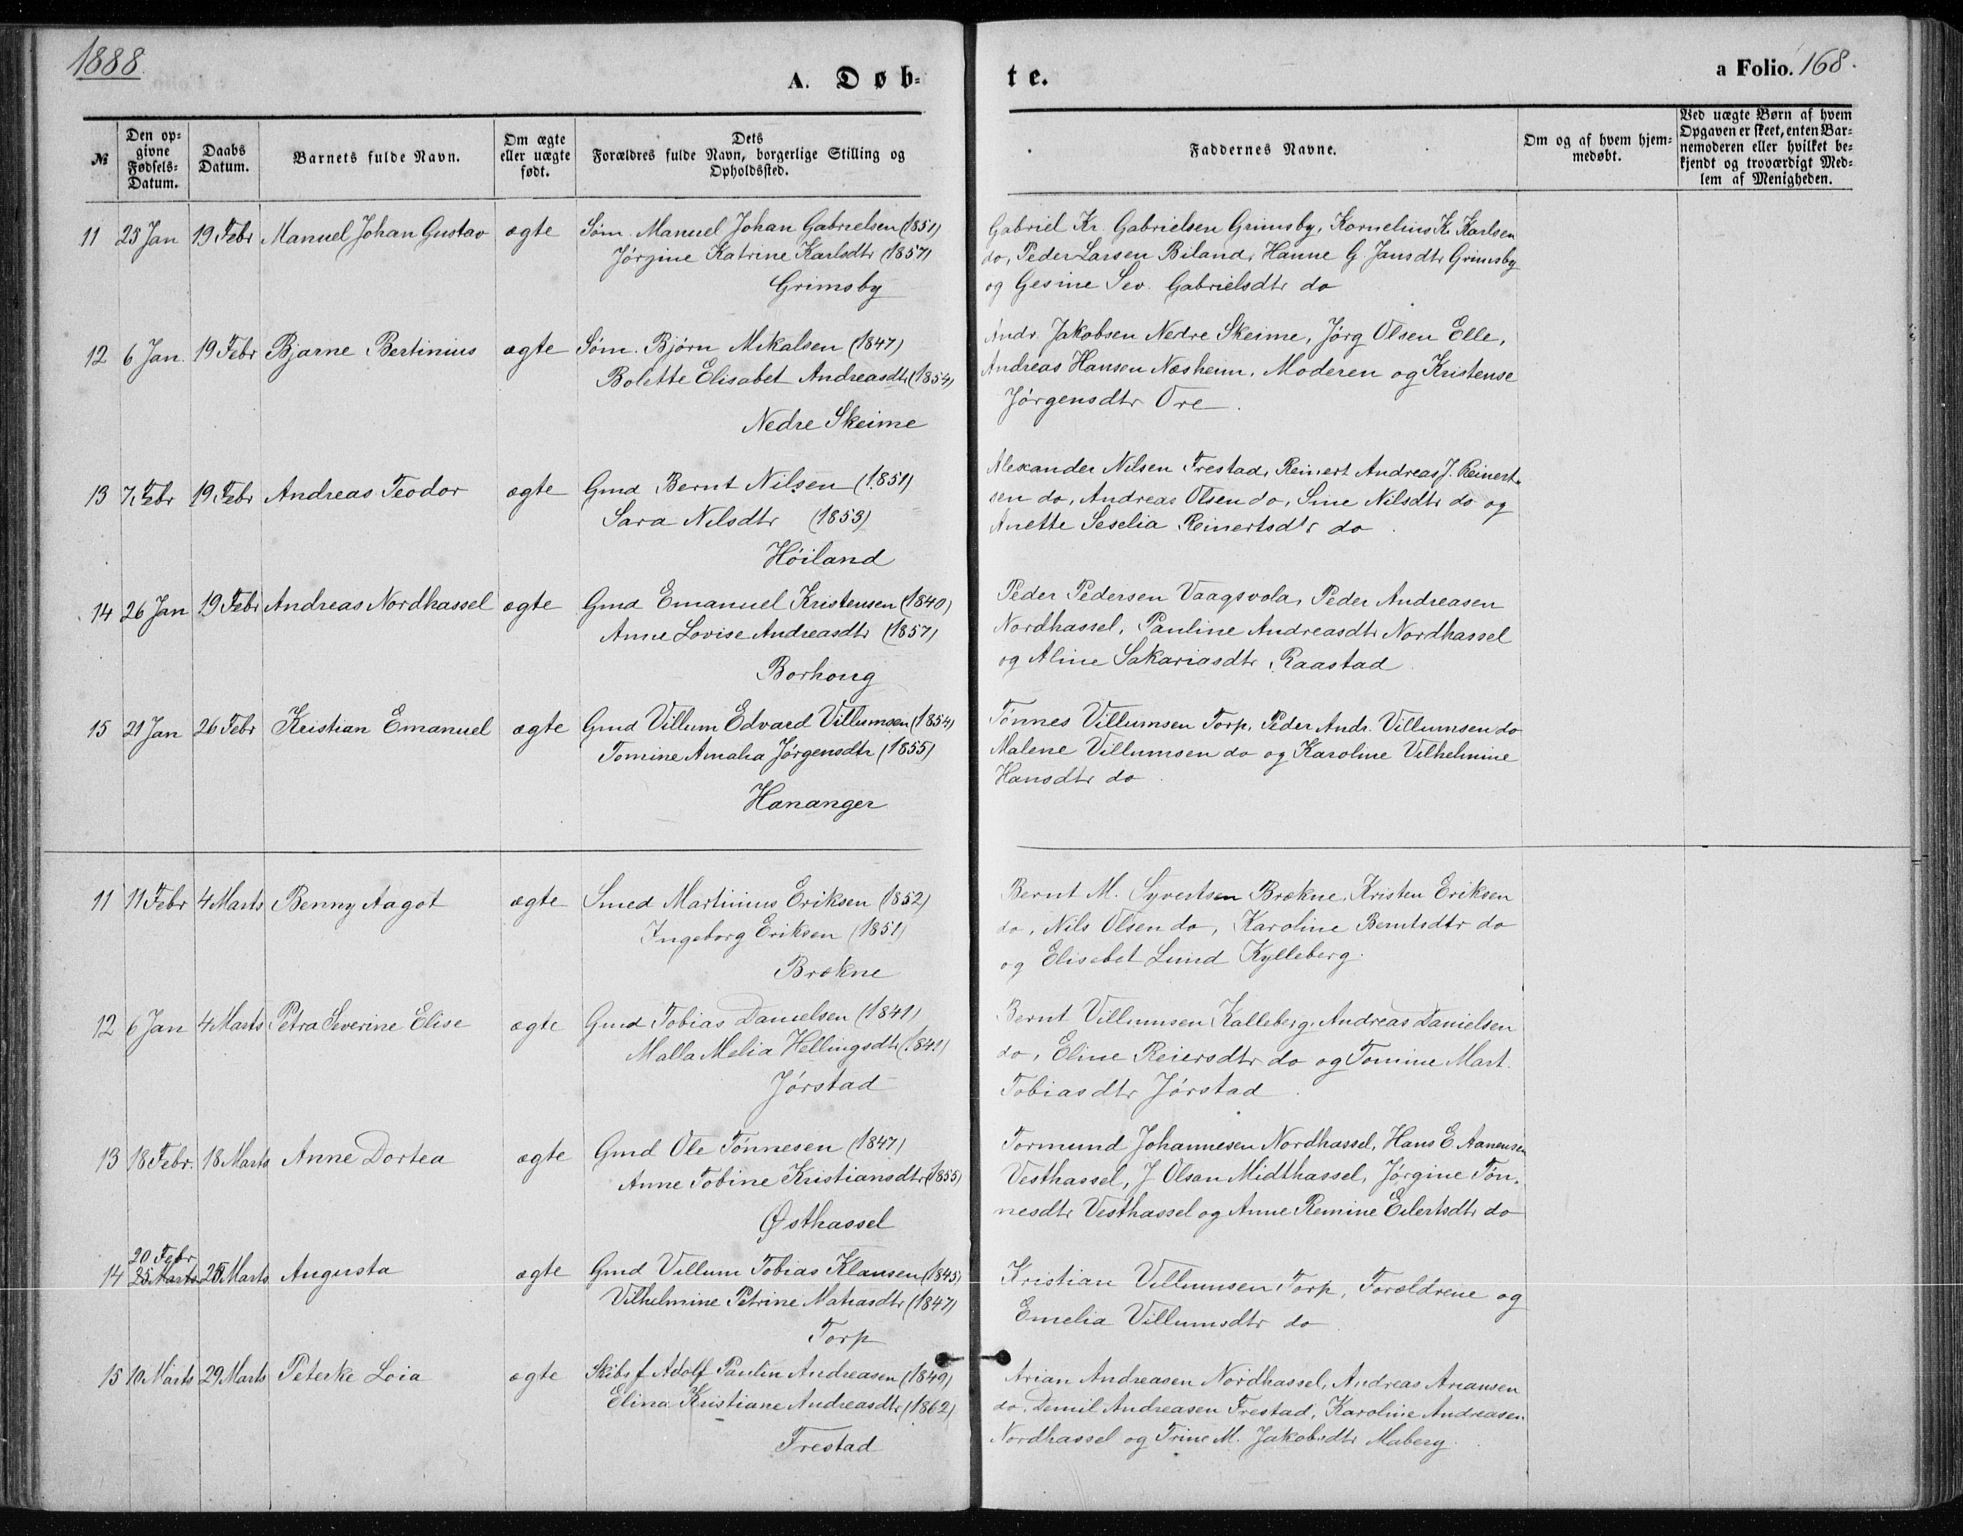 1888.
A. Døb-
te.
a Folio. 168.
№
Den op-
givne
Fødsels-
Datum.
Daabs
Datum.
Barnets fulde Navn.
Om ægte
eller uægte
født.
Dets
Forældres fulde Navn, borgerlige Stilling og
Opholdssted.
Faddernes Navne.
Om og af hvem hjem-
medøbt.
Ved uægte Børn af hvem
Opgaven er skeet, enten Bar-
nemoderen eller hvilket be-
kjendt og troværdigt Med-
lem af Menigheden.
11 25 Jan 19 Febr Manuel Johan Gustav ægte Søm. Manuel Johan Gabrielsen (1851)
Jørgine Katrine Karlsdtr (1857)
Grimsby
Gabriel Kr. Gabrielsen Grimsby, Kornelius K. Karlsen
do, Peder Larsen Biland, Hanne G Jansdtr Grimsby
og Gesine Sev. Gabrielsdtr do
12 6 Jan 19 Febr Bjarne Bertinius ægte Søm. Bjørn Mikalsen (1847)
Bolette Elisabet Andreasdtr (1854)
Nedre Skeime
Andr. Jakobsen Nedre Skeime, Jørg Olsen Elle,
Andreas Hansen Næsheim, Moderen og Kristense
Jørgensdtr Ore.
13 7 Febr 19 Febr Andreas Teodor ægte Gmd Bernt Nilsen (1851)
Sara Nilsdtr (1853)
Høiland
Alexander Nilsen Frestad, Reinert Andreas J. Reinert-
sen do, Andreas Olsen do, Sine Nilsdtr do og
Anette Seselia Reinertsdtr do.
14 26 Jan 19 Febr Andreas Nordhassel ægte Gmd Emanuel Kristensen (1840)
Anne Lovise Andreasdtr (1857)
Borhoug
Peder Pedersen Vaagsvola, Peder Andreasen
Nordhassel, Pauline Andreasdtr Nordhassel
og Aline Sakariasdtr Raastad.
15 21 Jan 26 Febr Kristian Emanuel ægte Gmd Villum Edvard Villumsen (1854)
Tomine Amalia Jørgensdtr (1855)
Hananger
Tønnes Villumsen Torp, Peder Andr. Villumsen do
Malene Villumsen do og Karoline Vilhelmine
Hansdtr do.
11 11 Febr 4 Marts Benny Aagot ægte Smed Martinius Eriksen (1852)
Ingeborg Eriksen (1851)
Brekne
Bernt M. Syvertsen Brekne, Kristen Eriksen
do, Nils Olsen do, Karoline Berntsdtr do
og Elisabet Lund Kylleberg.
12 6 Jan 4 Marts Petra Severine Elise ægte Gmd Tobias Danielsen (1841)
Malla Melia Hellingsdtr (1841)
Jørstad
Bernt Villumsen Kalleberg, Andreas Danielsen
do, Eline Reiersdtr do og Tomine Mart.
Tobiasdtr Jørstad.
13 18 Febr. 18 Marts Anne Dortea ægte Gmd Ole Tønnesen (1847)
Anne Tobine Kristiansdtr (1855)
Østhassel
Tormund Johannesen Nordhassel, Hans E. Aanensen
Vesthassel, J Olsen Midthassel, Jørgine Tøn-
nesdtr Vesthassel og Anne Remine Eilertsdtr do
20 Febr
14 25 Marts 28 Marts Augusta ægte Gmd Villum Tobias Klausen (1845)
Vilhelmine Petrine Matiasdtr (1847)
Torp
Kristian Villumsen Torp, Forældrene og
Emelia Villumsdtr do
15 10 Marts 29 Marts Peterke Loia ægte Skibsf Adolf Paulin Andreasen (1849)
Elina Kristiane Andreasdtr (1862)
Frestad
Arian Andreasen Nordhassel, Andreas Ariansen
do, Demil Andreasen Frestad, Karoline Andreasen
Nordhassel og Trine M. Jakobsdtr Maberg.